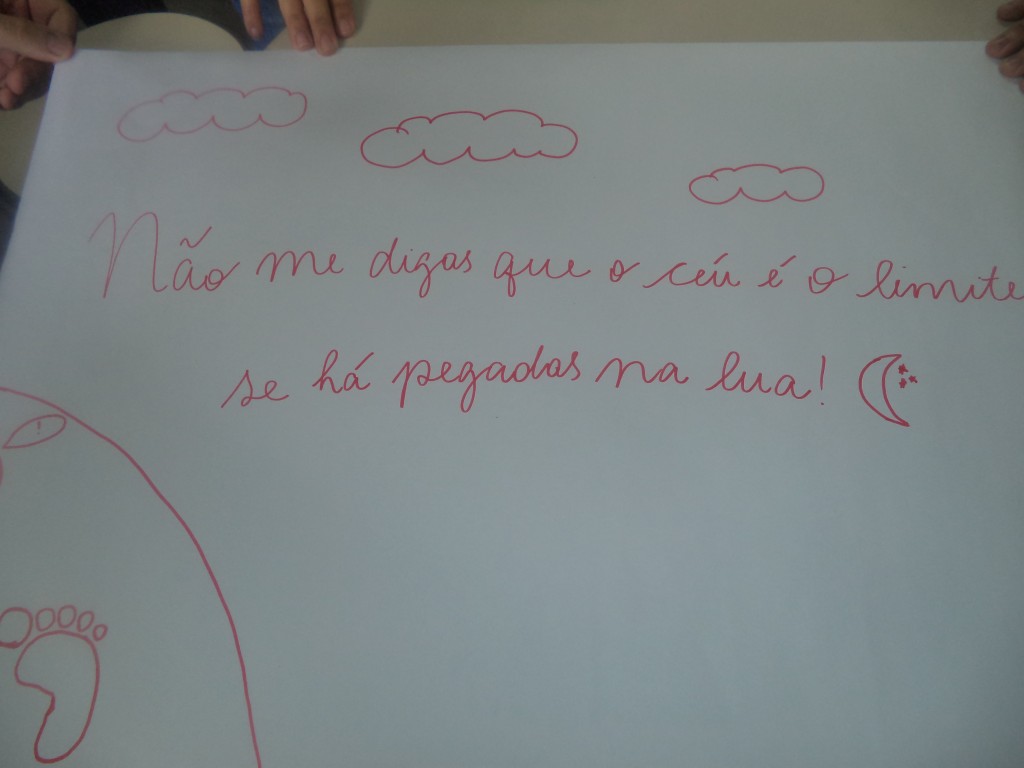 Não me digas que o céu é o limite
se há pegadas na lua!